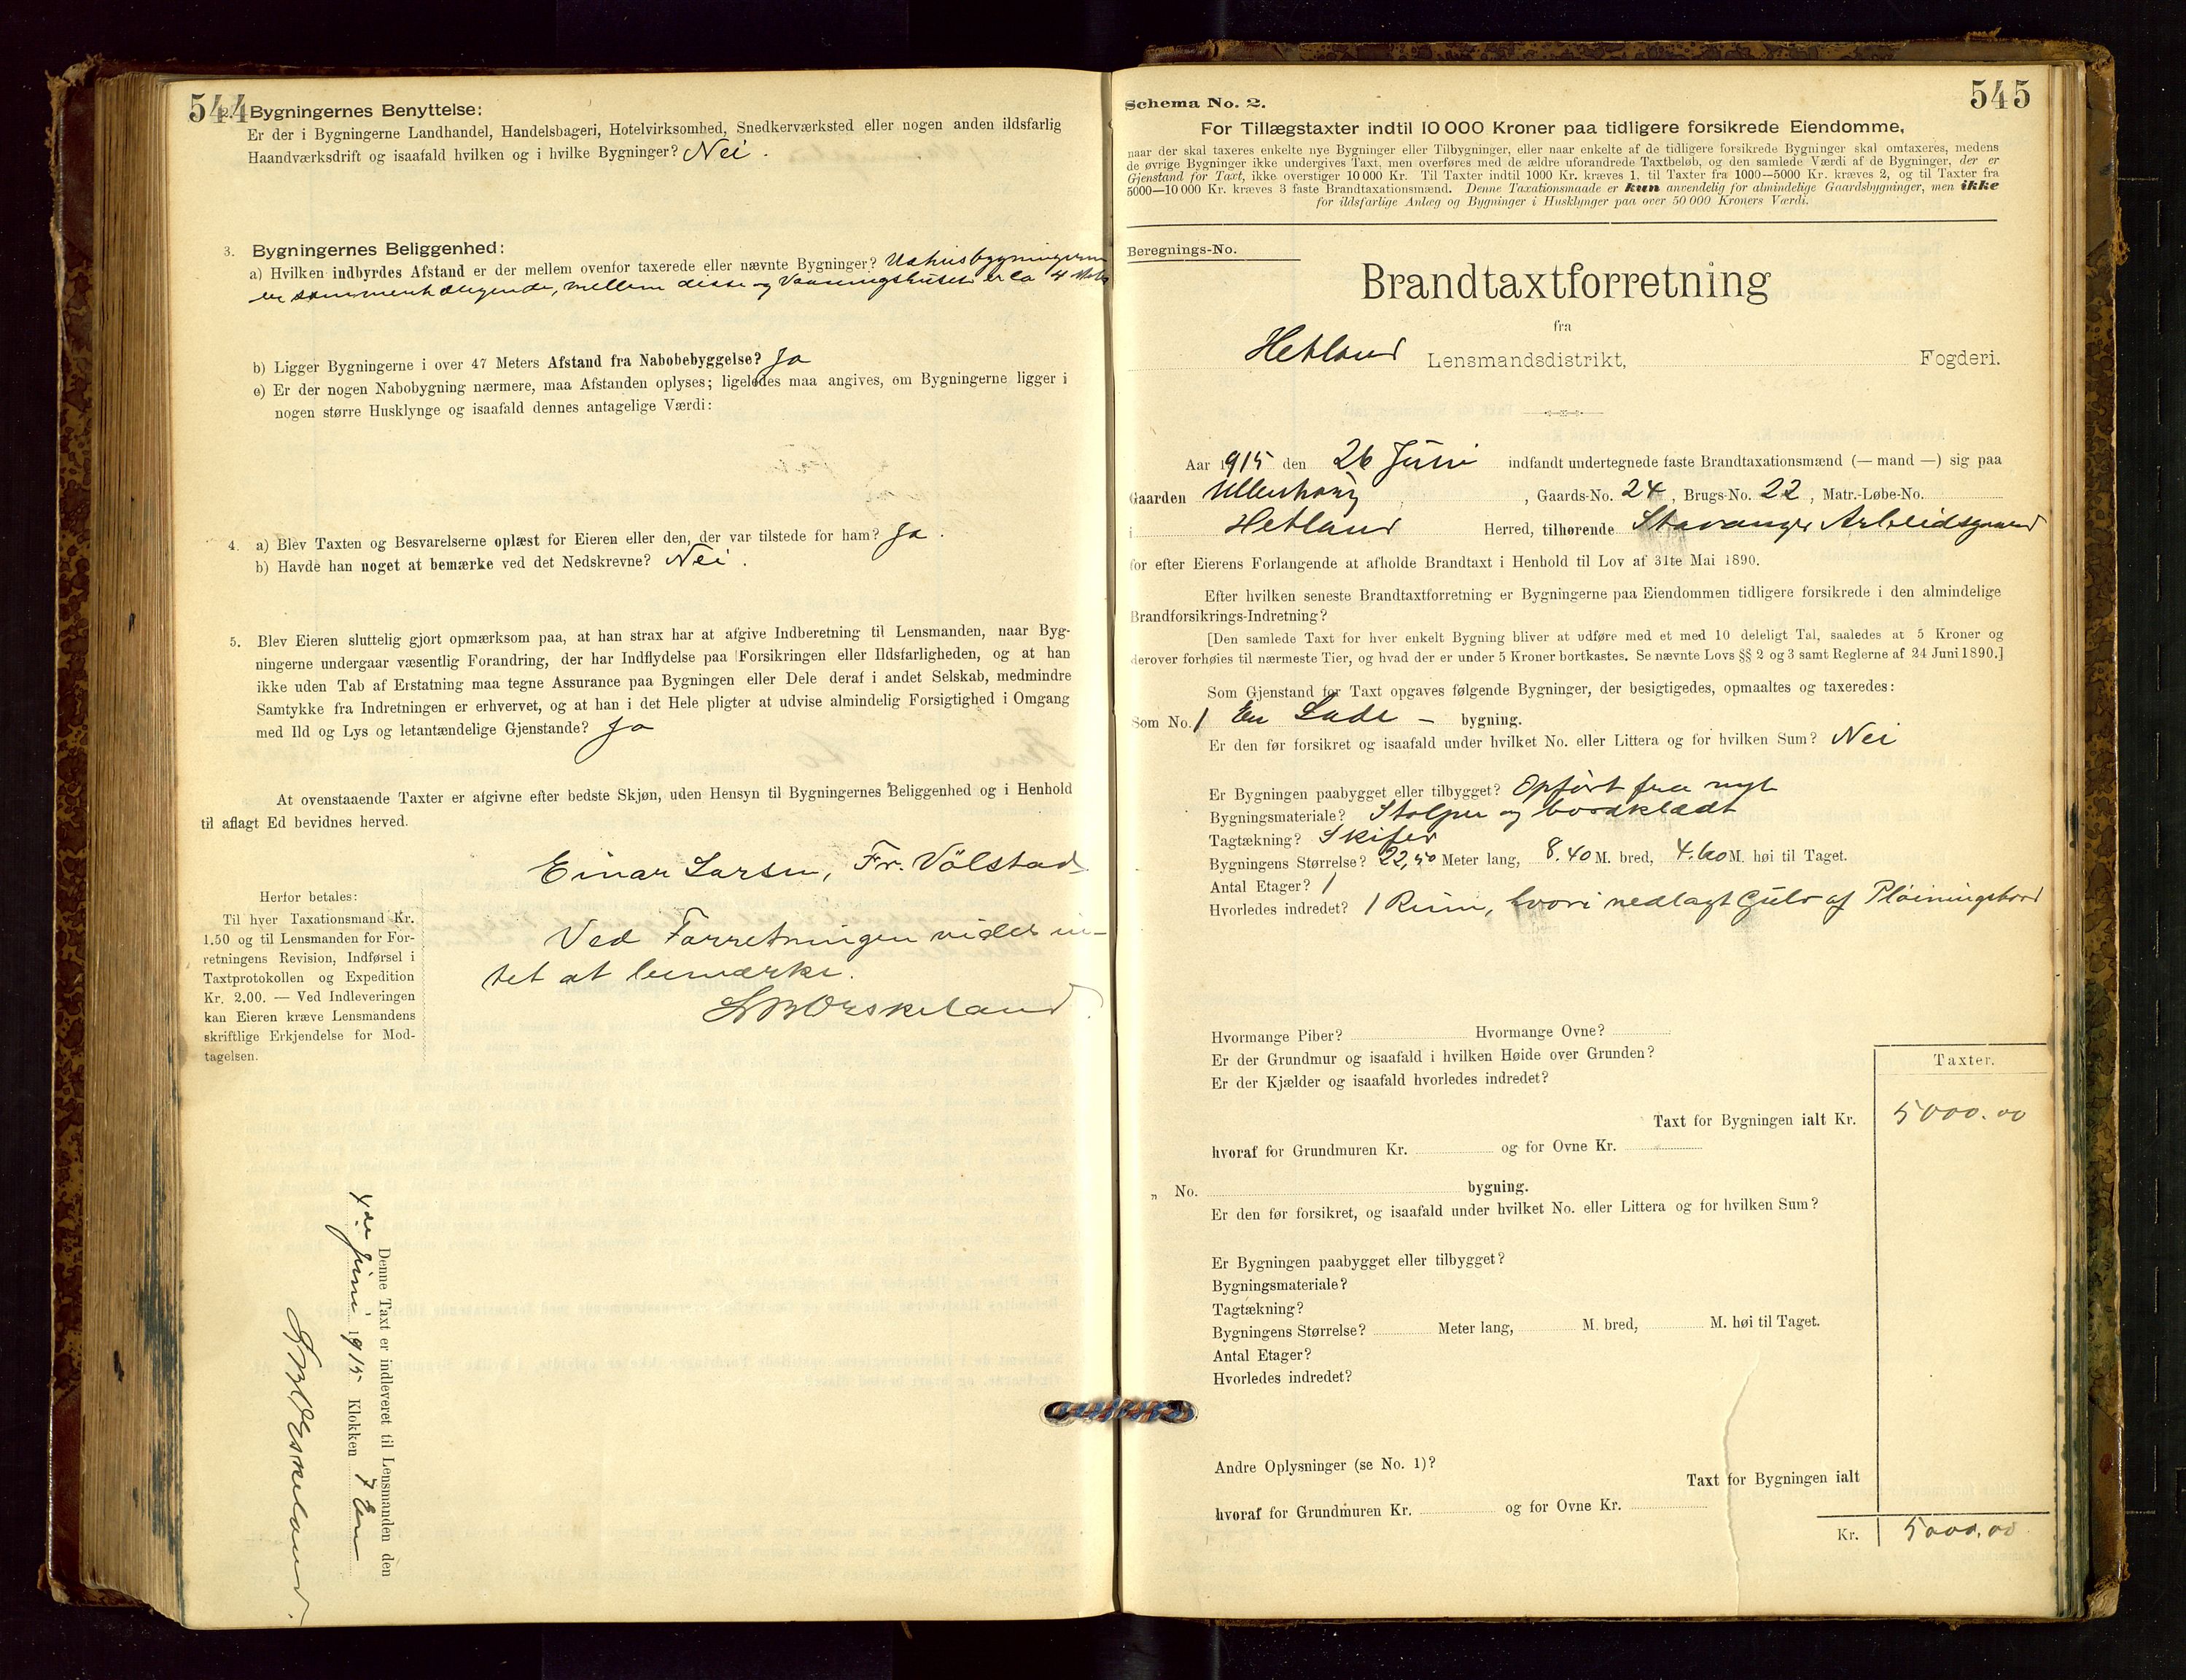 544
2. Bygningernes Benyttelse:
Er der i Bygningerne Landhandel, Handelsbageri, Hotelvirksomhed, Snedkerværksted eller nogen anden ildsfarlig
Haandværksdrift og isaafald hvilken og i hvilke Bygninger? Nei.
3. Bygningernes Beliggenhed:
a) Hvilken indbyrdes Afstand er der mellem ovenfor taxerede eller nævnte Bygninger? Udhusbygningerne
er sammenhængende, mellem disse og Vaaningshuset er ca 4 Meter
b) Ligger Bygningerne i over 47 Meters Afstand fra Nabobebyggelse? Ja
c) Er der nogen Nabobygning nærmere, maa Afstanden oplyses; ligeledes maa angives, om Bygningerne ligger i
nogen større Husklynge og isaafald dennes antagelige Værdi:
4. a) Blev Taxten og Besvarelserne oplæst for Eieren eller den, der var tilstede for ham? Ja.
b) Havde han noget at bemærke ved det Nedskrevne? Nei.
5. Blev Eieren sluttelig gjort opmærksom paa, at han strax har at afgive Indberetning til Lensmanden, naar Byg-
ningerne undergaar væsentlig Forandring, der har Indflydelse paa Forsikringen eller Ildsfarligheden, og at han
ikke uden Tab af Erstatning maa tegne Assurance paa Bygningen eller Dele deraf i andet Selskab, medmindre
Samtykke fra Indretningen er erhvervet, og at han i det Hele pligter at udvise almindelig Forsigtighed i Omgang
med Ild og Lys og letantændelige Gjenstande? Ja
At ovenstaaende Taxter er afgivne efter bedste Skjøn, uden Hensyn til Bygningernes Beliggenhed og i Henhold
til aflagt Ed bevidnes herved.
Einar Larsen, Fr. Völstad
Herfor betales:
Til hver Taxationsmand Kr.
1.50 og til Lensmanden for For-
retningens Revision, Indførsel i
Taxtprotokollen og Expedition
Kr. 2.00. — Ved Indleveringen
kan Eieren kræve Lensmandens
skriftlige Erkjendelse for Mod-
tagelsen.
Ved Forretningen vides in-
tet at bemærke.
Denne Taxt er indleveret til Lensmanden den
4de Juni 1915 Klokken 7 Em
545
Schema No. 2.
For Tillægstaxter indtil 10 000 Kroner paa tidligere forsikrede Eiendomme,
naar der skal taxeres enkelte nye Bygninger eller Tilbygninger, eller naar enkelte af de tidligere forsikrede Bygninger skal omtaxeres, medens
de øvrige Bygninger ikke undergives Taxt, men overføres med de ældre uforandrede Taxtbeløb, og den samlede Værdi af de Bygninger, der er
Gjenstand for Taxt, ikke overstiger 10 000 Kr. Til Taxter indtil 1000 Kr. kræves 1, til Taxter fra 1000—5000 Kr. kræves 2, og til Taxter fra
5000—10 000 Kr. kræves 3 faste Brandtaxationsmænd. Denne Taxationsmaade er kun anvendelig for almindelige Gaardsbygninger, men ikke
for ildsfarlige Anlæg og Bygninger i Husklynger paa over 50 000 Kroners Værdi.
Beregnings-No.
Brandtaxtforretning
fra
Hetland Lensmandsdistrikt, Fogderi.
Aar 1915 den 26 Juni indfandt undertegnede faste Brandtaxationsmænd (— mand —) sig paa
Gaarden Ullenhaug, Gaards-No. 24, Brugs-No. 22, Matr.-Løbe-No.
i Hetland Herred, tilhørende Stavanger Arbeidsgaard
for efter Eierens Forlangende at afholde Brandtaxt i Henhold til Lov af 31te Mai 1890.
Efter hvilken seneste Brandtaxtforretning er Bygningerne paa Eiendommen tidligere forsikrede i den almindelige
Brandforsikrings-Indretning?
[Den samlede Taxt for hver enkelt Bygning bliver at udføre med et med 10 deleligt Tal, saaledes at 5 Kroner og
derover forhøies til nærmeste Tier, og hvad der er under 5 Kroner bortkastes. Se nævnte Lovs §§ 2 og 3 samt Reglerne af 24 Juni 1890.]
Som Gjenstand for Taxt opgaves følgende Bygninger, der besigtigedes, opmaaltes og taxeredes:
Som No. 1 En Lade — bygning.
Er den før forsikret og isaafald under hvilket No. eller Littera og for hvilken Sum? Nei
Er Bygningen paabygget eller tilbygget? Opført fra nyt
Bygningsmateriale? Stolper og bordklædt
Tagtækning? Skifer
Bygningens Størrelse? 22,40 Meter lang, 8.40 M. bred, 4.60 M. høi til Taget.
Antal Etager? 1
Hvorledes indredet? 1 Rum, hvori nedlagt Gulv af Pløiningsbord
Hvormange Piber? Hvormange Ovne?
Er der Grundmur og isaafald i hvilken Høide over Grunden?
Er der Kjælder og isaafald hvorledes indredet?
Taxter.
Taxt for Bygningen ialt Kr. 5000.00
hvoraf for Grundmuren Kr. og for Ovne Kr.
„ No. bygning.
Er den før forsikret, og isaafald under hvilket No. eller Littera og for hvilken Sum?
Er Bygningen paabygget eller tilbygget?
Bygningsmateriale?
Tagtækning?
Bygningens Størrelse? Meter lang, M. bred, M. høi til Taget.
Antal Etager?
Hvorledes indredet?
Andre Oplysninger (se No. 1)?
Taxt for Bygningen ialt
hvoraf for Grundmuren Kr. og for Ovne Kr.
Kr. 5000.00